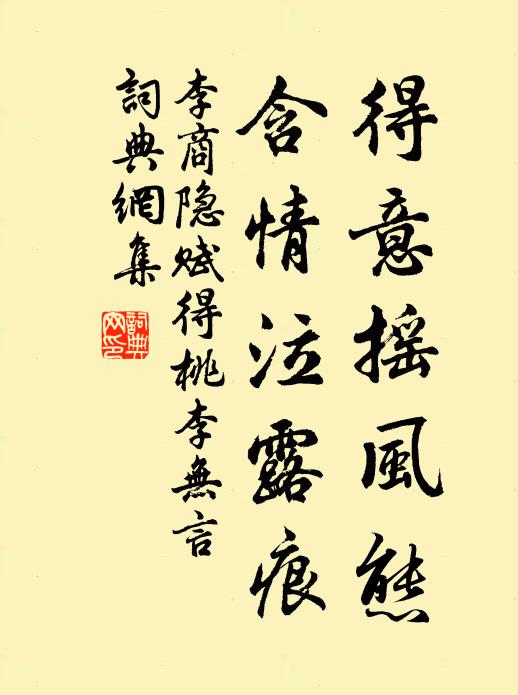 得意摇風態
含情泣露痕
李商隐赋得桃李無言
詞典網集
詞典
网印